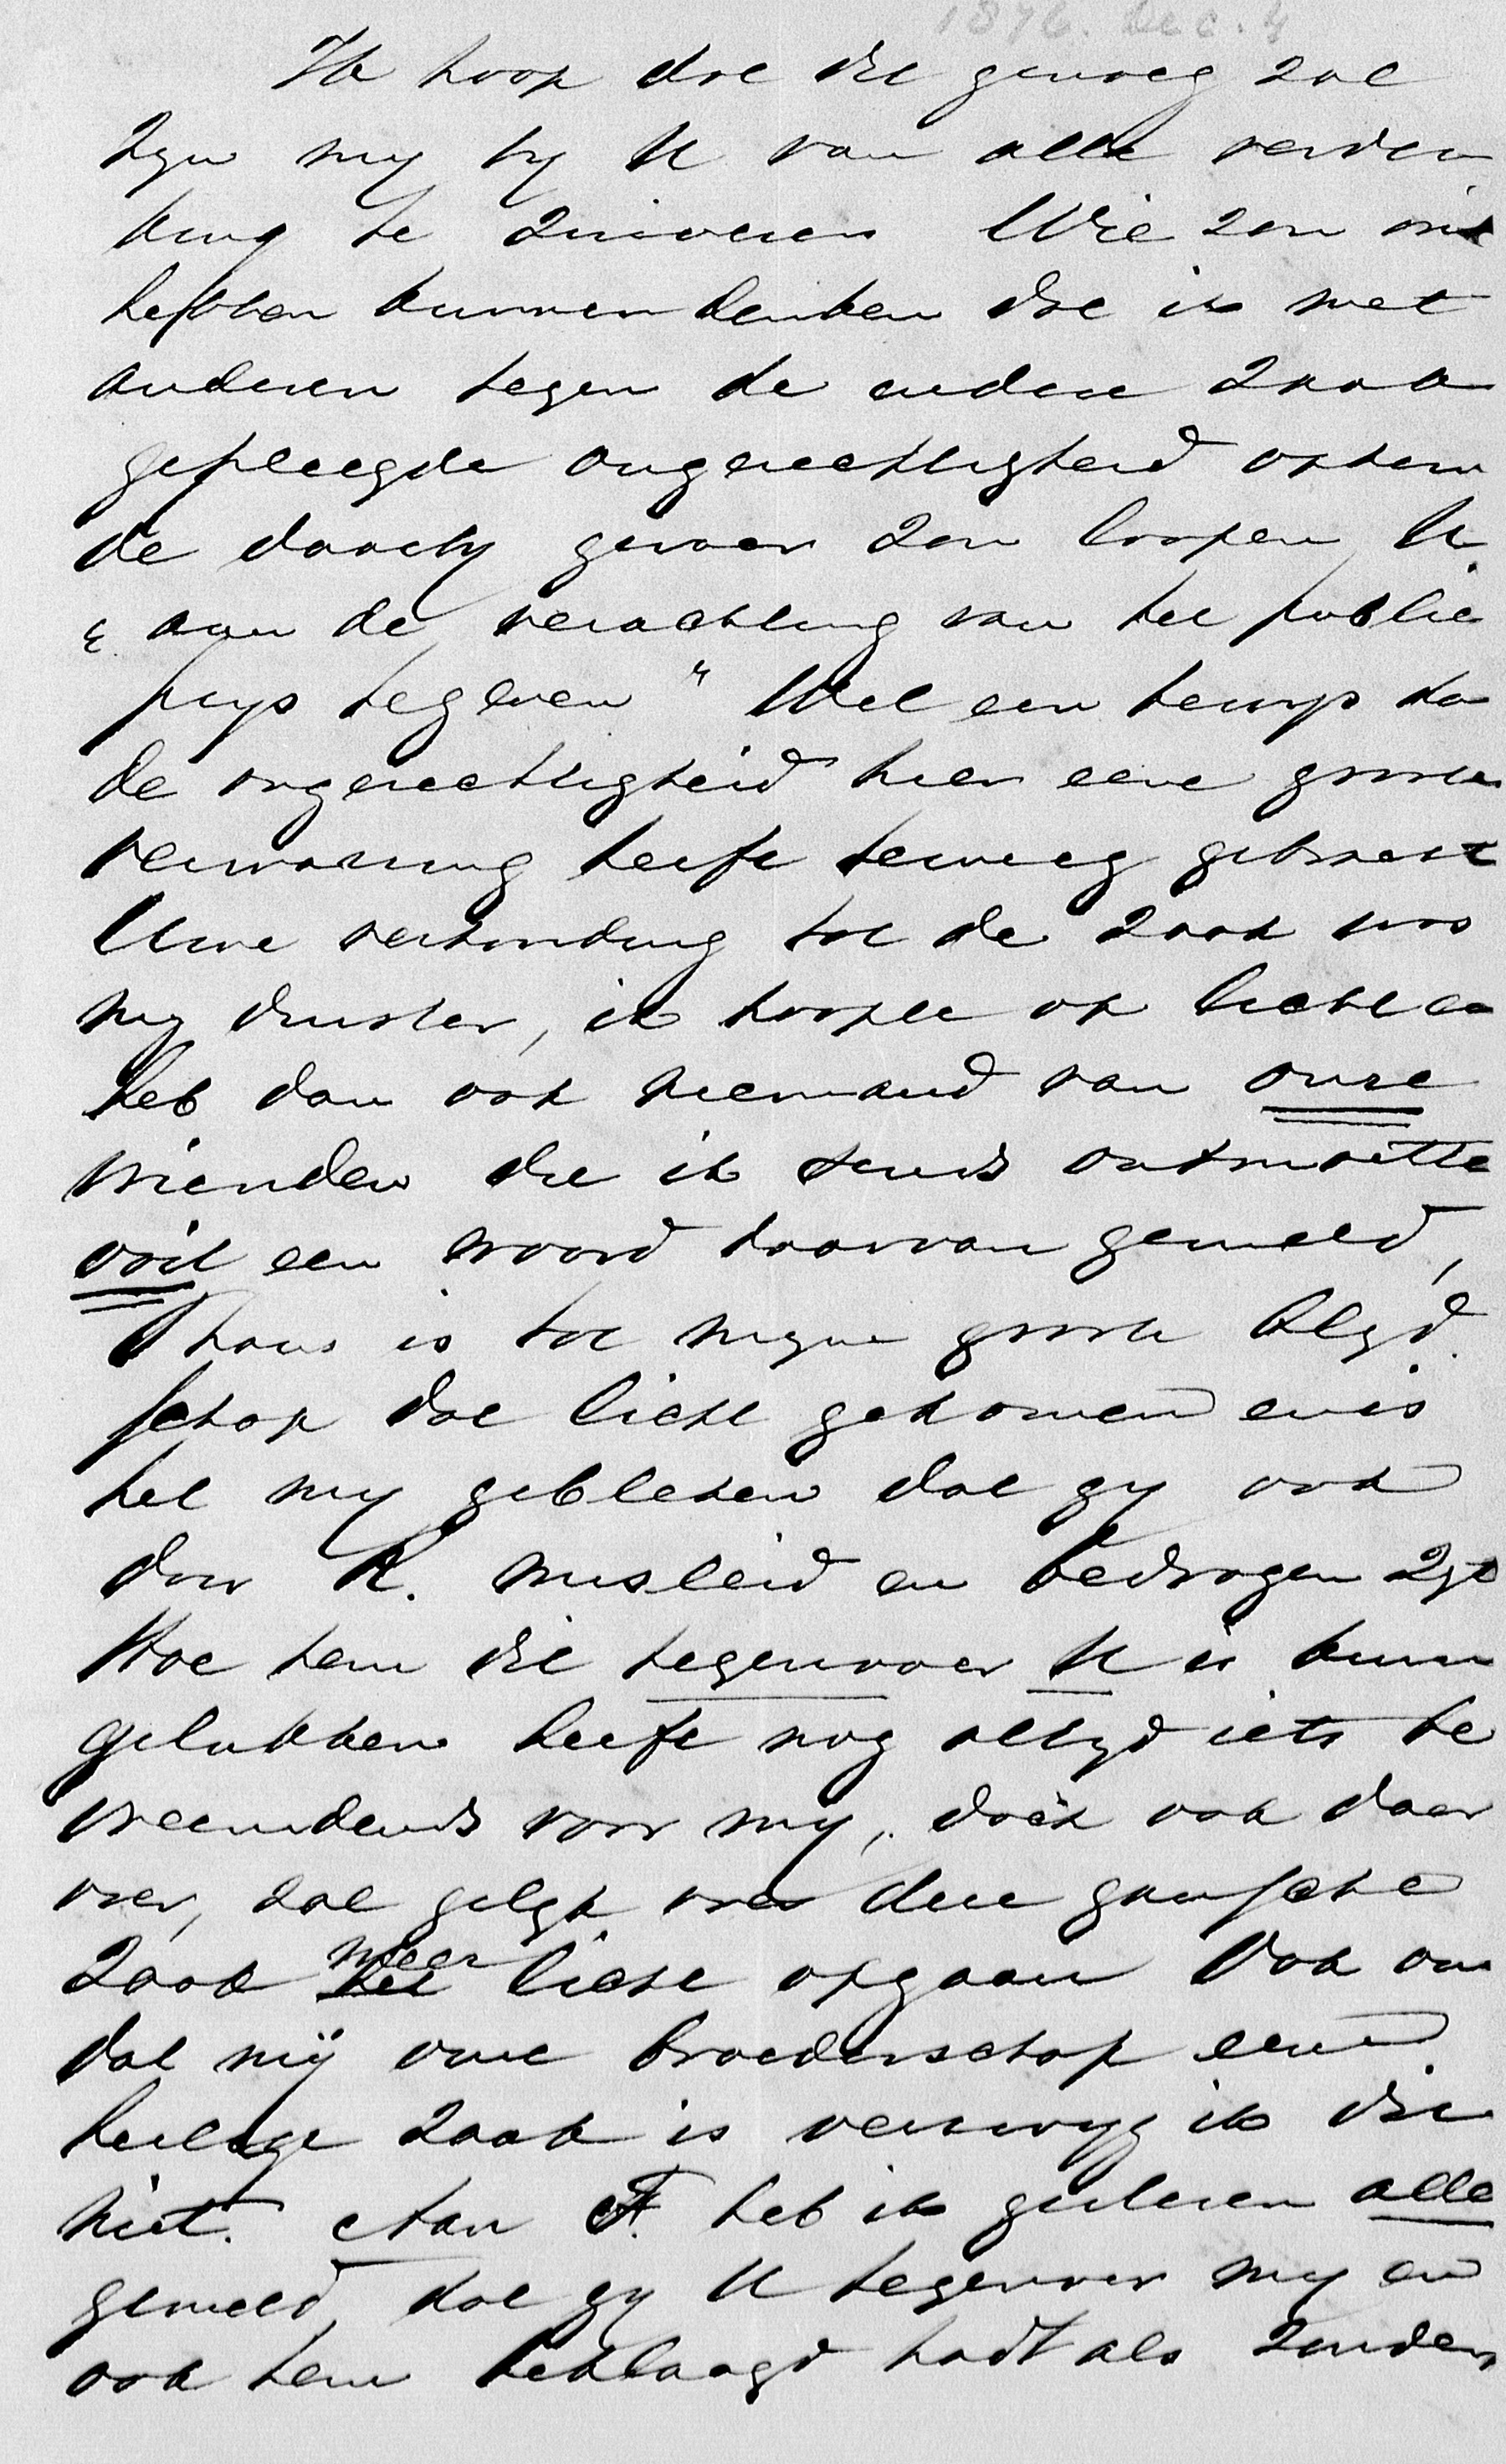 1876. Dec. 4
Ik hoop dat dit genoeg zal
zyn my by U van alle verden
king te zuiveren Wie zou ooit
hebben kunnen denken dat ik met
anderen tegen de andere zaak
gepleegde ongerechtigheid opkom
de daarby gevaar zou loopen U
" aan de verachting van het publiek
prys tegeven" Wel een bewys dat
de ongerechtigheid hier eene groote
verwarring heeft teweeg gebracht
Uwe verhouding tot de zaak was
my duister, ik hoopte op licht en
heb dan ook niemand van onze
vrienden die ik sends ontmoette
ooit een woord daarvan gemeld,
Thans is tot myne groote blyd
schap dat licht gekomen en is
het my gebleken dat gy ook
door K. misleid en bedrogen zyt
Hoe hem dit tegenover U is kunnen
gelukken heeft nog altyd iets be
vreemdends voor my, doch ook daar
over, zal gelyk over dee gansche
zaak meer licht opgaan Ook om
dat mÿ onze broederschap eene
heilige zaak is verzwyg ik dit
niet. Aan F. heb ik gisteren alle
gemeld, dat gy U tegenover my en
ook hem beklaagd hadt als zouden